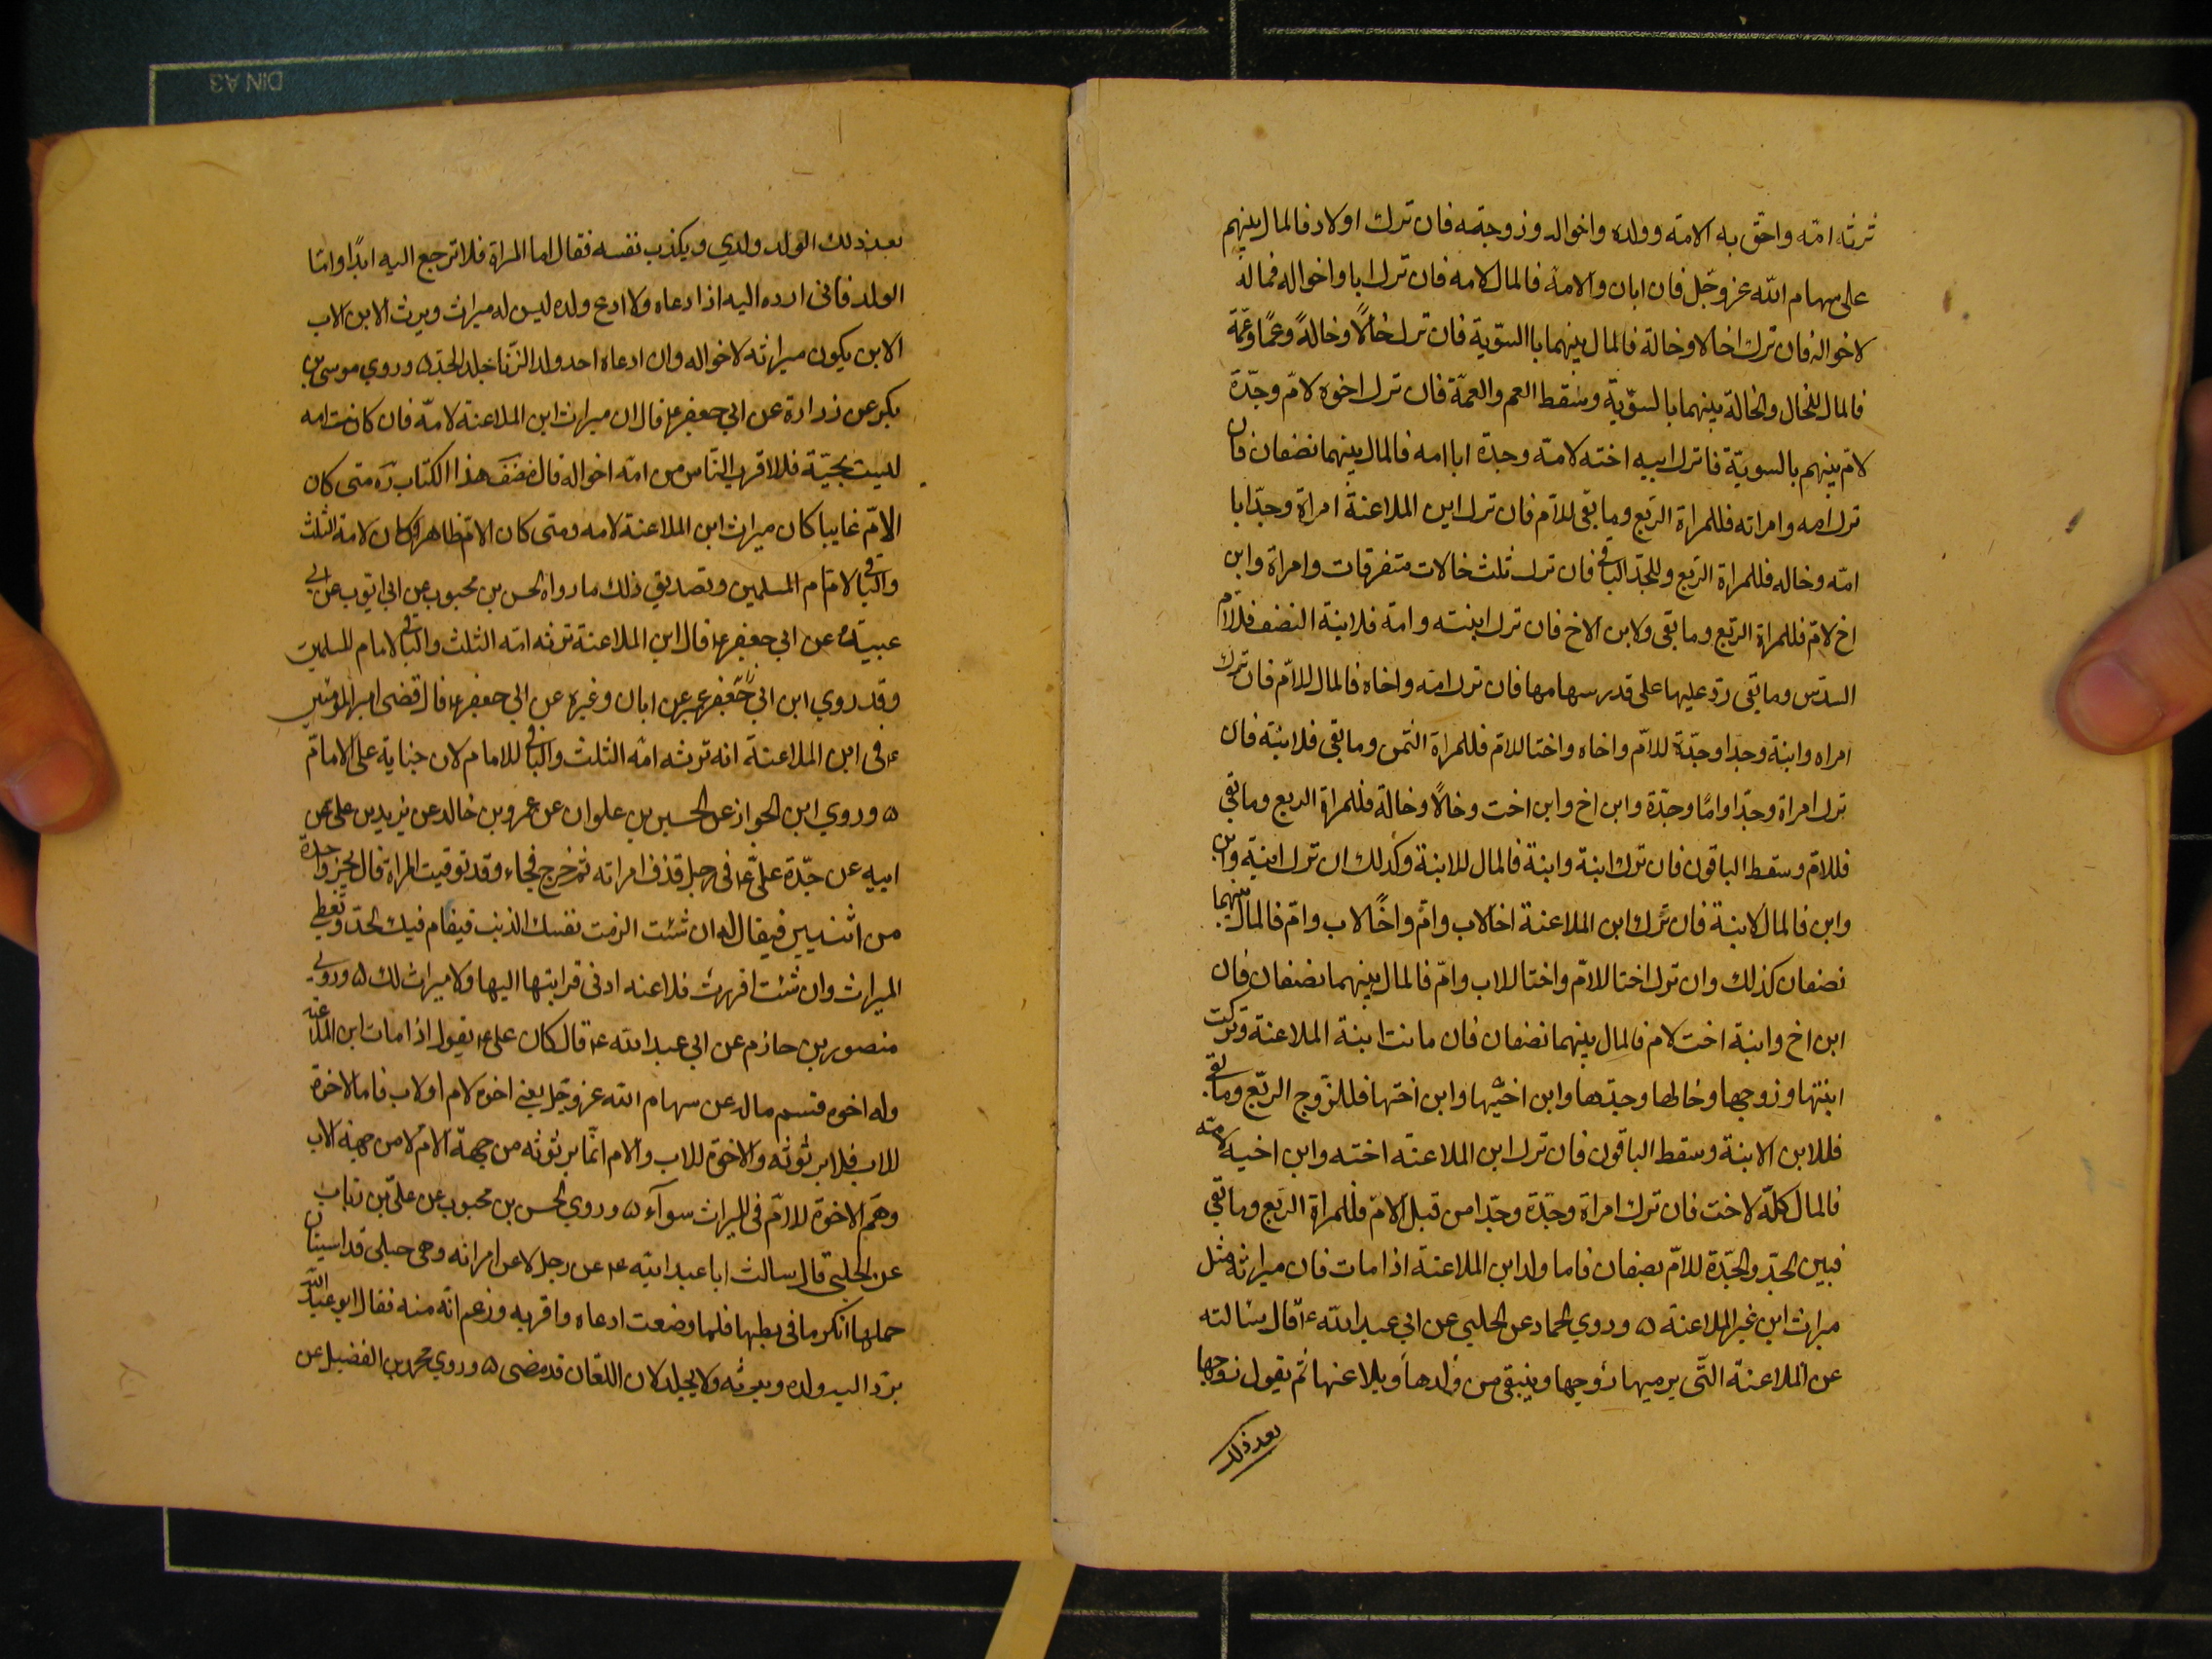 ترثه امّه واخوته لامّه وولده واخواله وزوجته فان ترك اولاد فالمال بينهم
على سهام الله عزوجّل فان ابان والامة فالمال لامه فان ترك ابا واخواله فماله
لاخواله فان ترك خالا وخالة فالمال بينهما باالسّوية فان ترك خالًا وخالةً وعمًا وعمّة
فالمال للخال والخالة بينهما بالسوّية وسقط العم والعمّة فان ترك اخوه لامّ وجدّة
لامّ بينهم بالسوية فا ترك ابيه اخته لامّه وجدة ابا امه فالمال بينهما نصفان فان
ترك امه وامراته فللمراة الربّع وما بقى للامّ فان ترك ابن الملاعنة امراة وجدّا ابا
امّه وخاله فللمراة الربّع وللجدّ الباقى فان ترك ثلث خالات متفرقات وامراة وابن
اخ لامّ فللمراة الربّع وما بقى ولابن الاخ فان ترك ابنته وامّه فلابنة النصف فللامّ
السدّس وما بقى ردّ عليها على قدر سهامها فان ترك امّه واخاه فالمال للامّ فان ترك
امراه وابنة وجدا وجدّة للامّ واخاه واختا للامّ فللمراة الثمن وما بقى فلابنة فان
ترك امراة وجدّا وامّا وجدّة وابن اخ وابن اخت وخالًا وخالة فللمراة الربع وما بقى
فللامّ وسقط الباقون فان ترك ابنة وابنة فالمال للابنة وكذلك ان ترك ابنة وابن
وابن فالمال لابنة فان ترك ابن الملاعنة اخا لاب وامّ واخًا لاب وامّ فالمال بينهما
نصفان كذلك وان ترك اختا للامّ واختا للاب وامّ فالمال بينهما نصفان فان
ابن اخ وابنة اخت لام فالمال بينهما نصفان فان ماتت ابنة الملاعنة وتركت
ابنتها وزوجها وخالها وجدّها وابن اخيها وابن اختها فللزّوج الربّع وما بقى
فللابن الابنة وسقط الباقون فان ترك ابن الملاعنه اخته وابن اخيه لامّه
فالمال كلّه لاخت فان ترك امراة وجدّة وجدّا من قبل الامّ فللمراة الربّع وما بقى
فبين الجدّ والجدّة للامّ نصفان فاما ولد ابن الملاعنة اذا مات فان ميراثه مثل
ميراث ابن غير الملاعنة ه وروي الحماد عن الحلبي عن ابي عبد الله ع قال سئالته
عن الملاعنة التّى يرميها زوجها وينتفى من ولدها ويلاعنها ثم يقول زوجها
بعد ذلك
بعد ذلك الولد ولدي ويكذب نفسه فقال اما المراة فلا ترجع اليه ابدًا وامّا
الولد فانى ارده اليه اذا ادعاه ولا ادع ولده ليس له ميراث ويرث الابن الاب
الابن يكون ميراثه لاخواله وان ادعاه احد ولد الزنّا جلد الحدّ ه وروي موسى بن
بكر عن زرارة عن ابي جعفر ع قال ان ميراث ابن الملاعنة لامّه فان كانت امه
ليست بحيّة فلاقرب النّاس من امّه اخواله قال مصنف هذا الكتاب ره متى كان
الامّ غايبا كان ميراث ابن الملاعنة لامه ومتى كان الامّ ظاهرا كان لامه الثلث
والباقى لامام المسلمين وتصديق ذلك ما رواه الحسن بن محبوب عن ابى ايّوب عن ابي
عبيدة عن ابي جعفر ع قال ابن الملاعنة ترثه امّه الثلث والباقى لامام المسلمين
وقد روي ابن ابي جعفر عمير عن ابان وغيره عن ابي جعفر ع قال قضى امير المؤمنين
ع فى ابن الملاعنة انه ترثه امّه الثلث والباقى للامام لان جناية على الامام
ه وروي ابن الجواز عن الحسين بن علوان عن عمرو بن خالد عن زيد بن على عن
ابيه عن جدّة علىّ ع فى رجل قذف امراته ثم خرج فجاء وقد توفيت المراة قال يخير واحدة
من اثنتين فيقال له ان شئت الزمت نفسك الذنب فيقام فيك الحدّ وتعطى
الميراث وان شئت اقررت فلاعنه ادنى قرابتها اليها ولا ميراث لك ه وروي
منصور بن حازم عن ابي عبد الله ع قال كان على ع يقول اذا مات ابن الملاعنة
وله اخوه قسم ماله عن سهام الله عزوجّل يعنى اخوه لام او لاب فاما الاخوة
للاب فلا يرثونه والاخوة للاب والام انّما يرثونه من جهة الامّ لا من جهة الاب
وهم الاخوة للامّ فى الميراث سوآء ه وروي الحسن بن محبوب عن علىّ بن رئاب
عن الحلبي قال سالت ابا عبد الله ع عن رجل لاعن امراته وهى حبلى قد استبان
حملها انكر ما فى بطنها فلما وضعت ادعاه واقر به وزعم انّه منه فقال ابو عبد الله
يردّ اليه ولده ويرثه ولا يجلد لان اللعّان قد مضى ه وروي محمد بن الفضيل عن